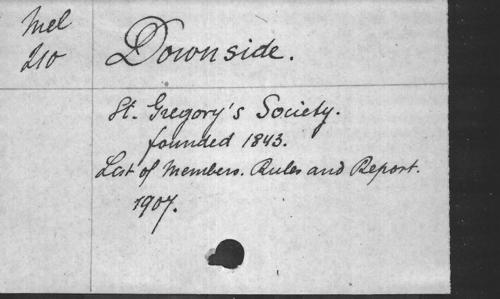 Mel
210
Downside.
St. Gregory's Society.
founded 1843.
List of Members. Rules and Report.
1907.